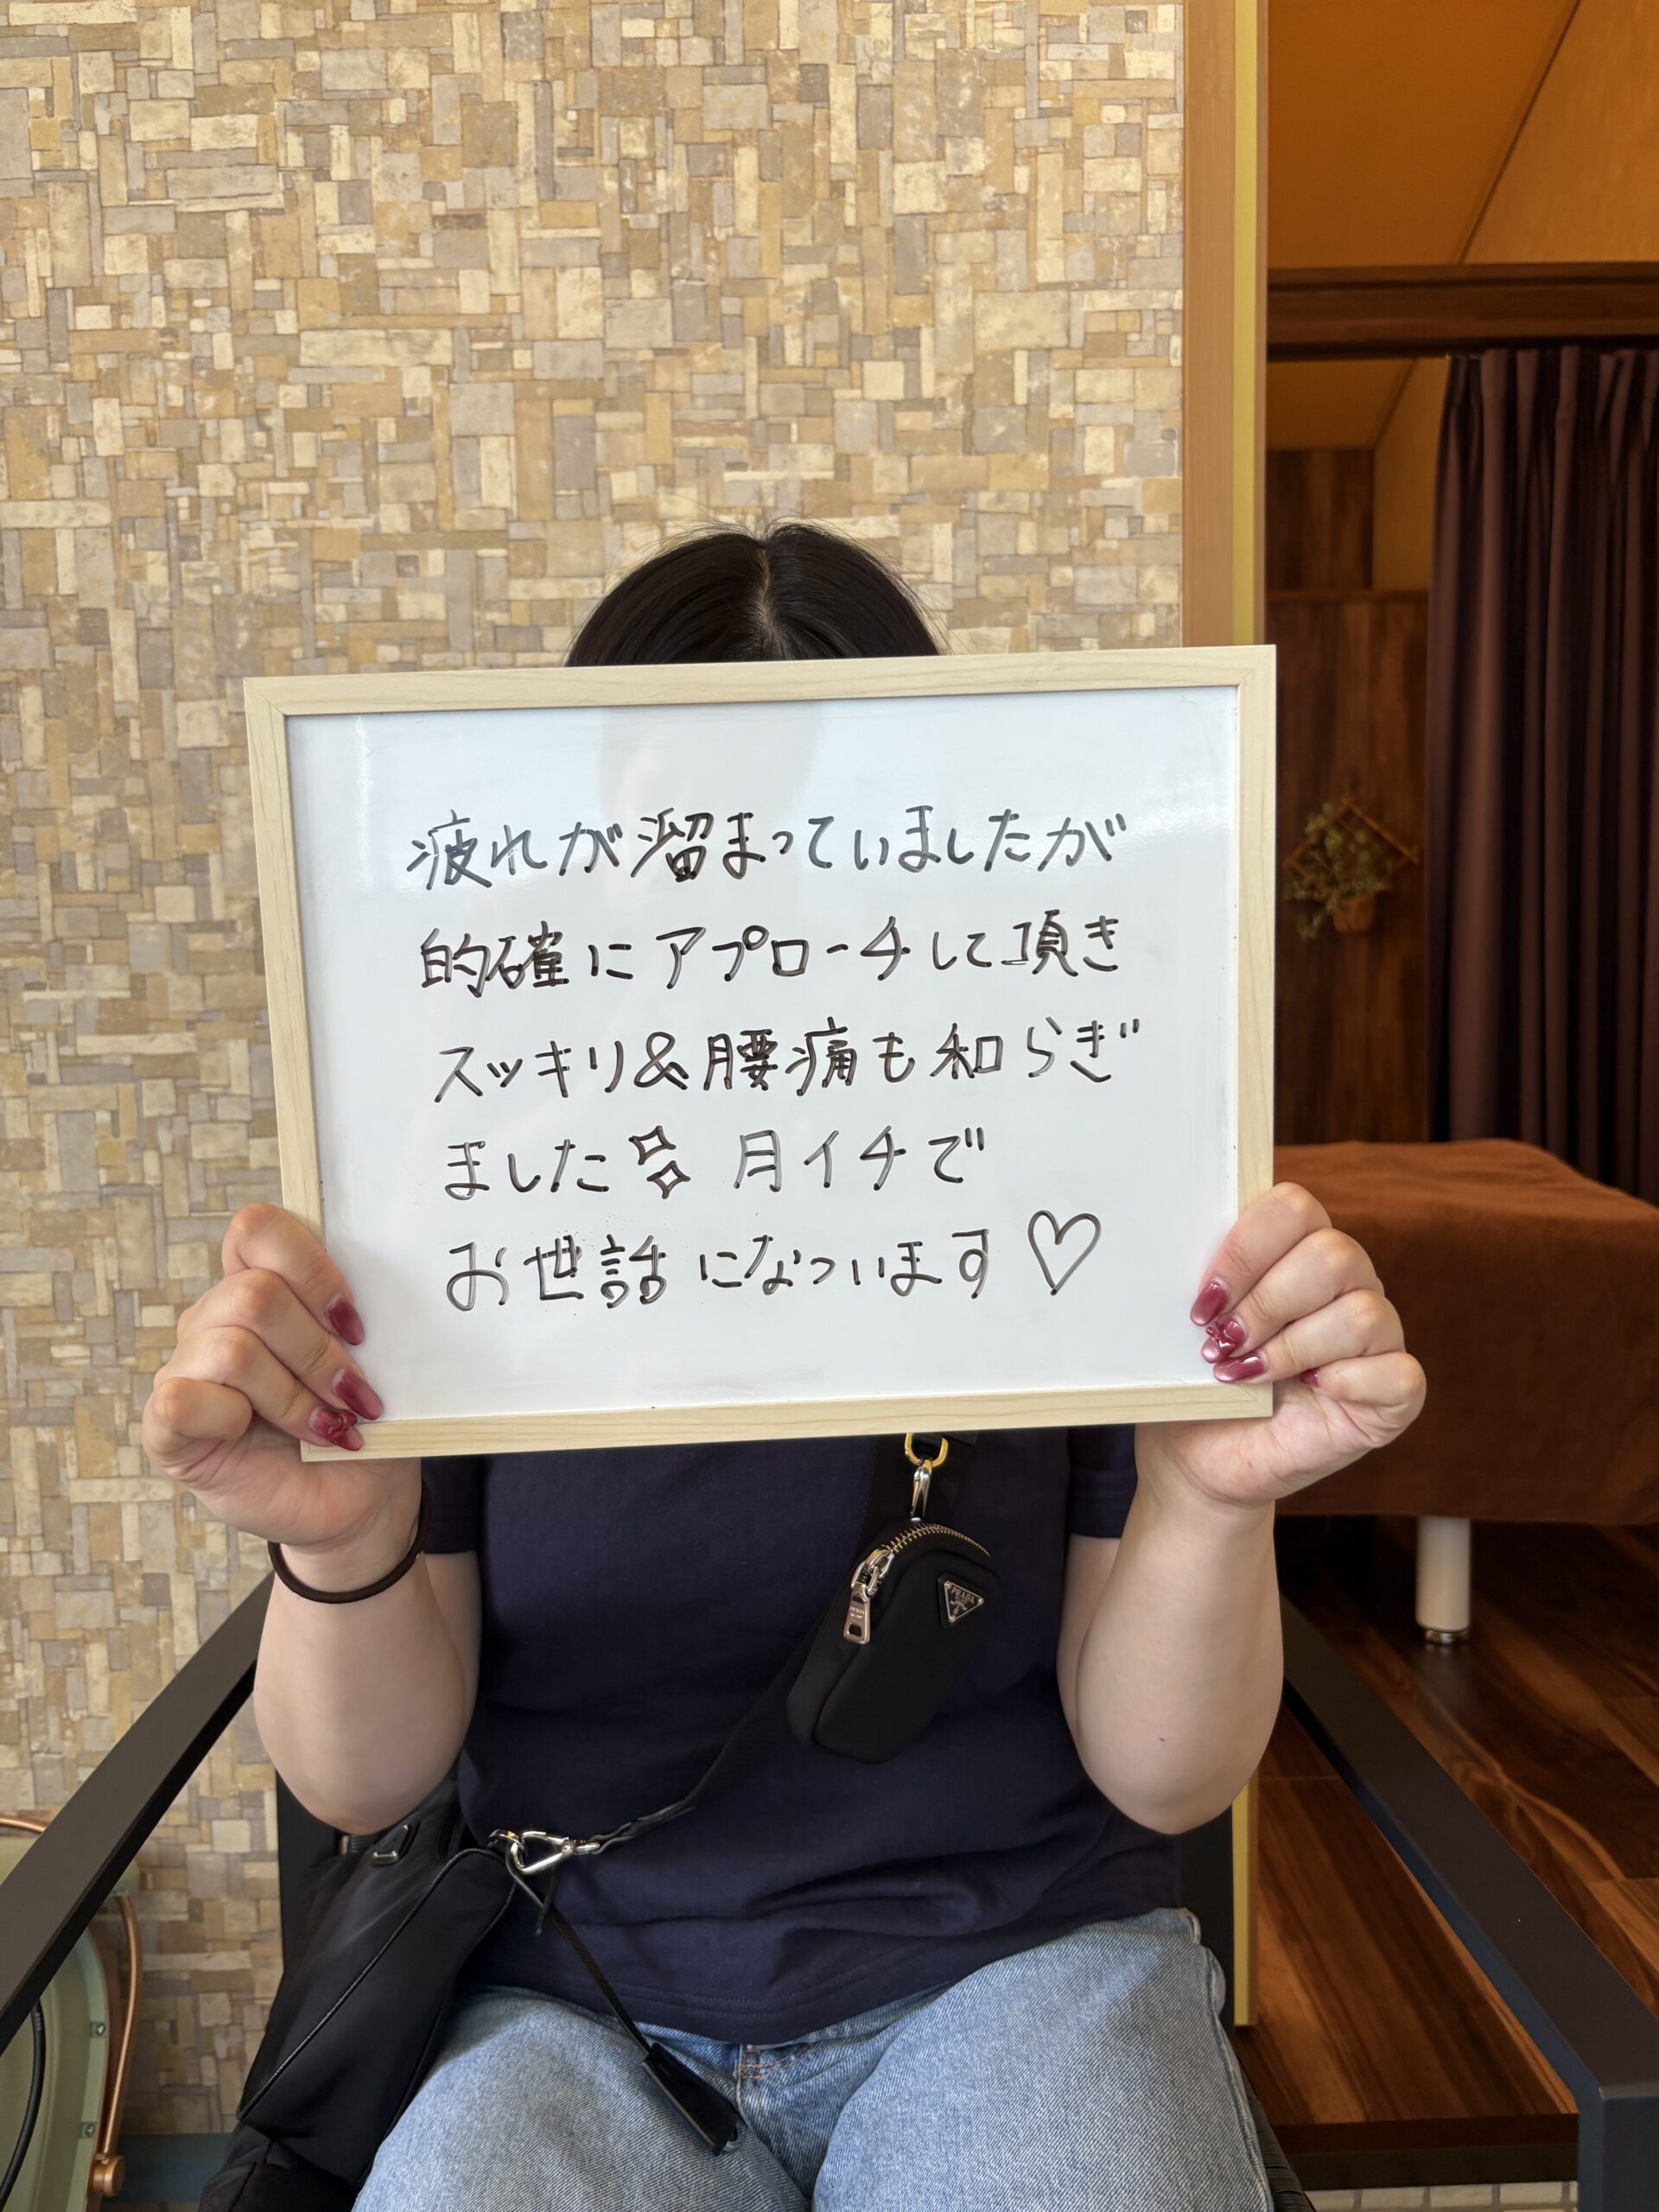 疲れが溜まっていましたが
的確にアプローチして頂き
スッキリ&腰痛も和らぎ
ました 月イチで
お世話になっています♡
PRADA